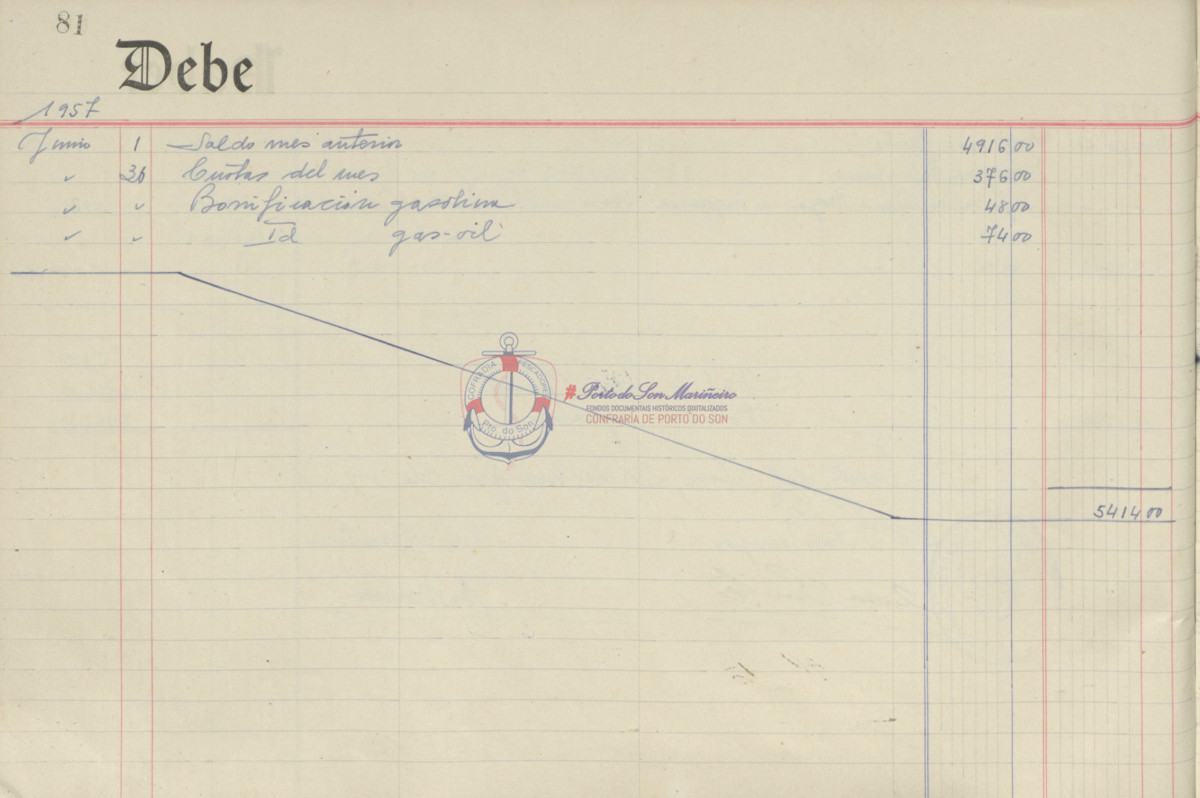 81
Debe
1957
Junio 1 Saldo mes anterior 4916 00
" 30 Cuotas del mes 376 00
" " Bonificación gasolina 48 00
" " Id gas-oil 74 00
COFRADIA PESCADORES
Pto. do Son
#Porto do Son Mariñeiro
FONDOS DOCUMENTAIS HISTÓRICOS DIXITALIZADOS
CONFRARÍA DE PORTO DO SON
5414 00